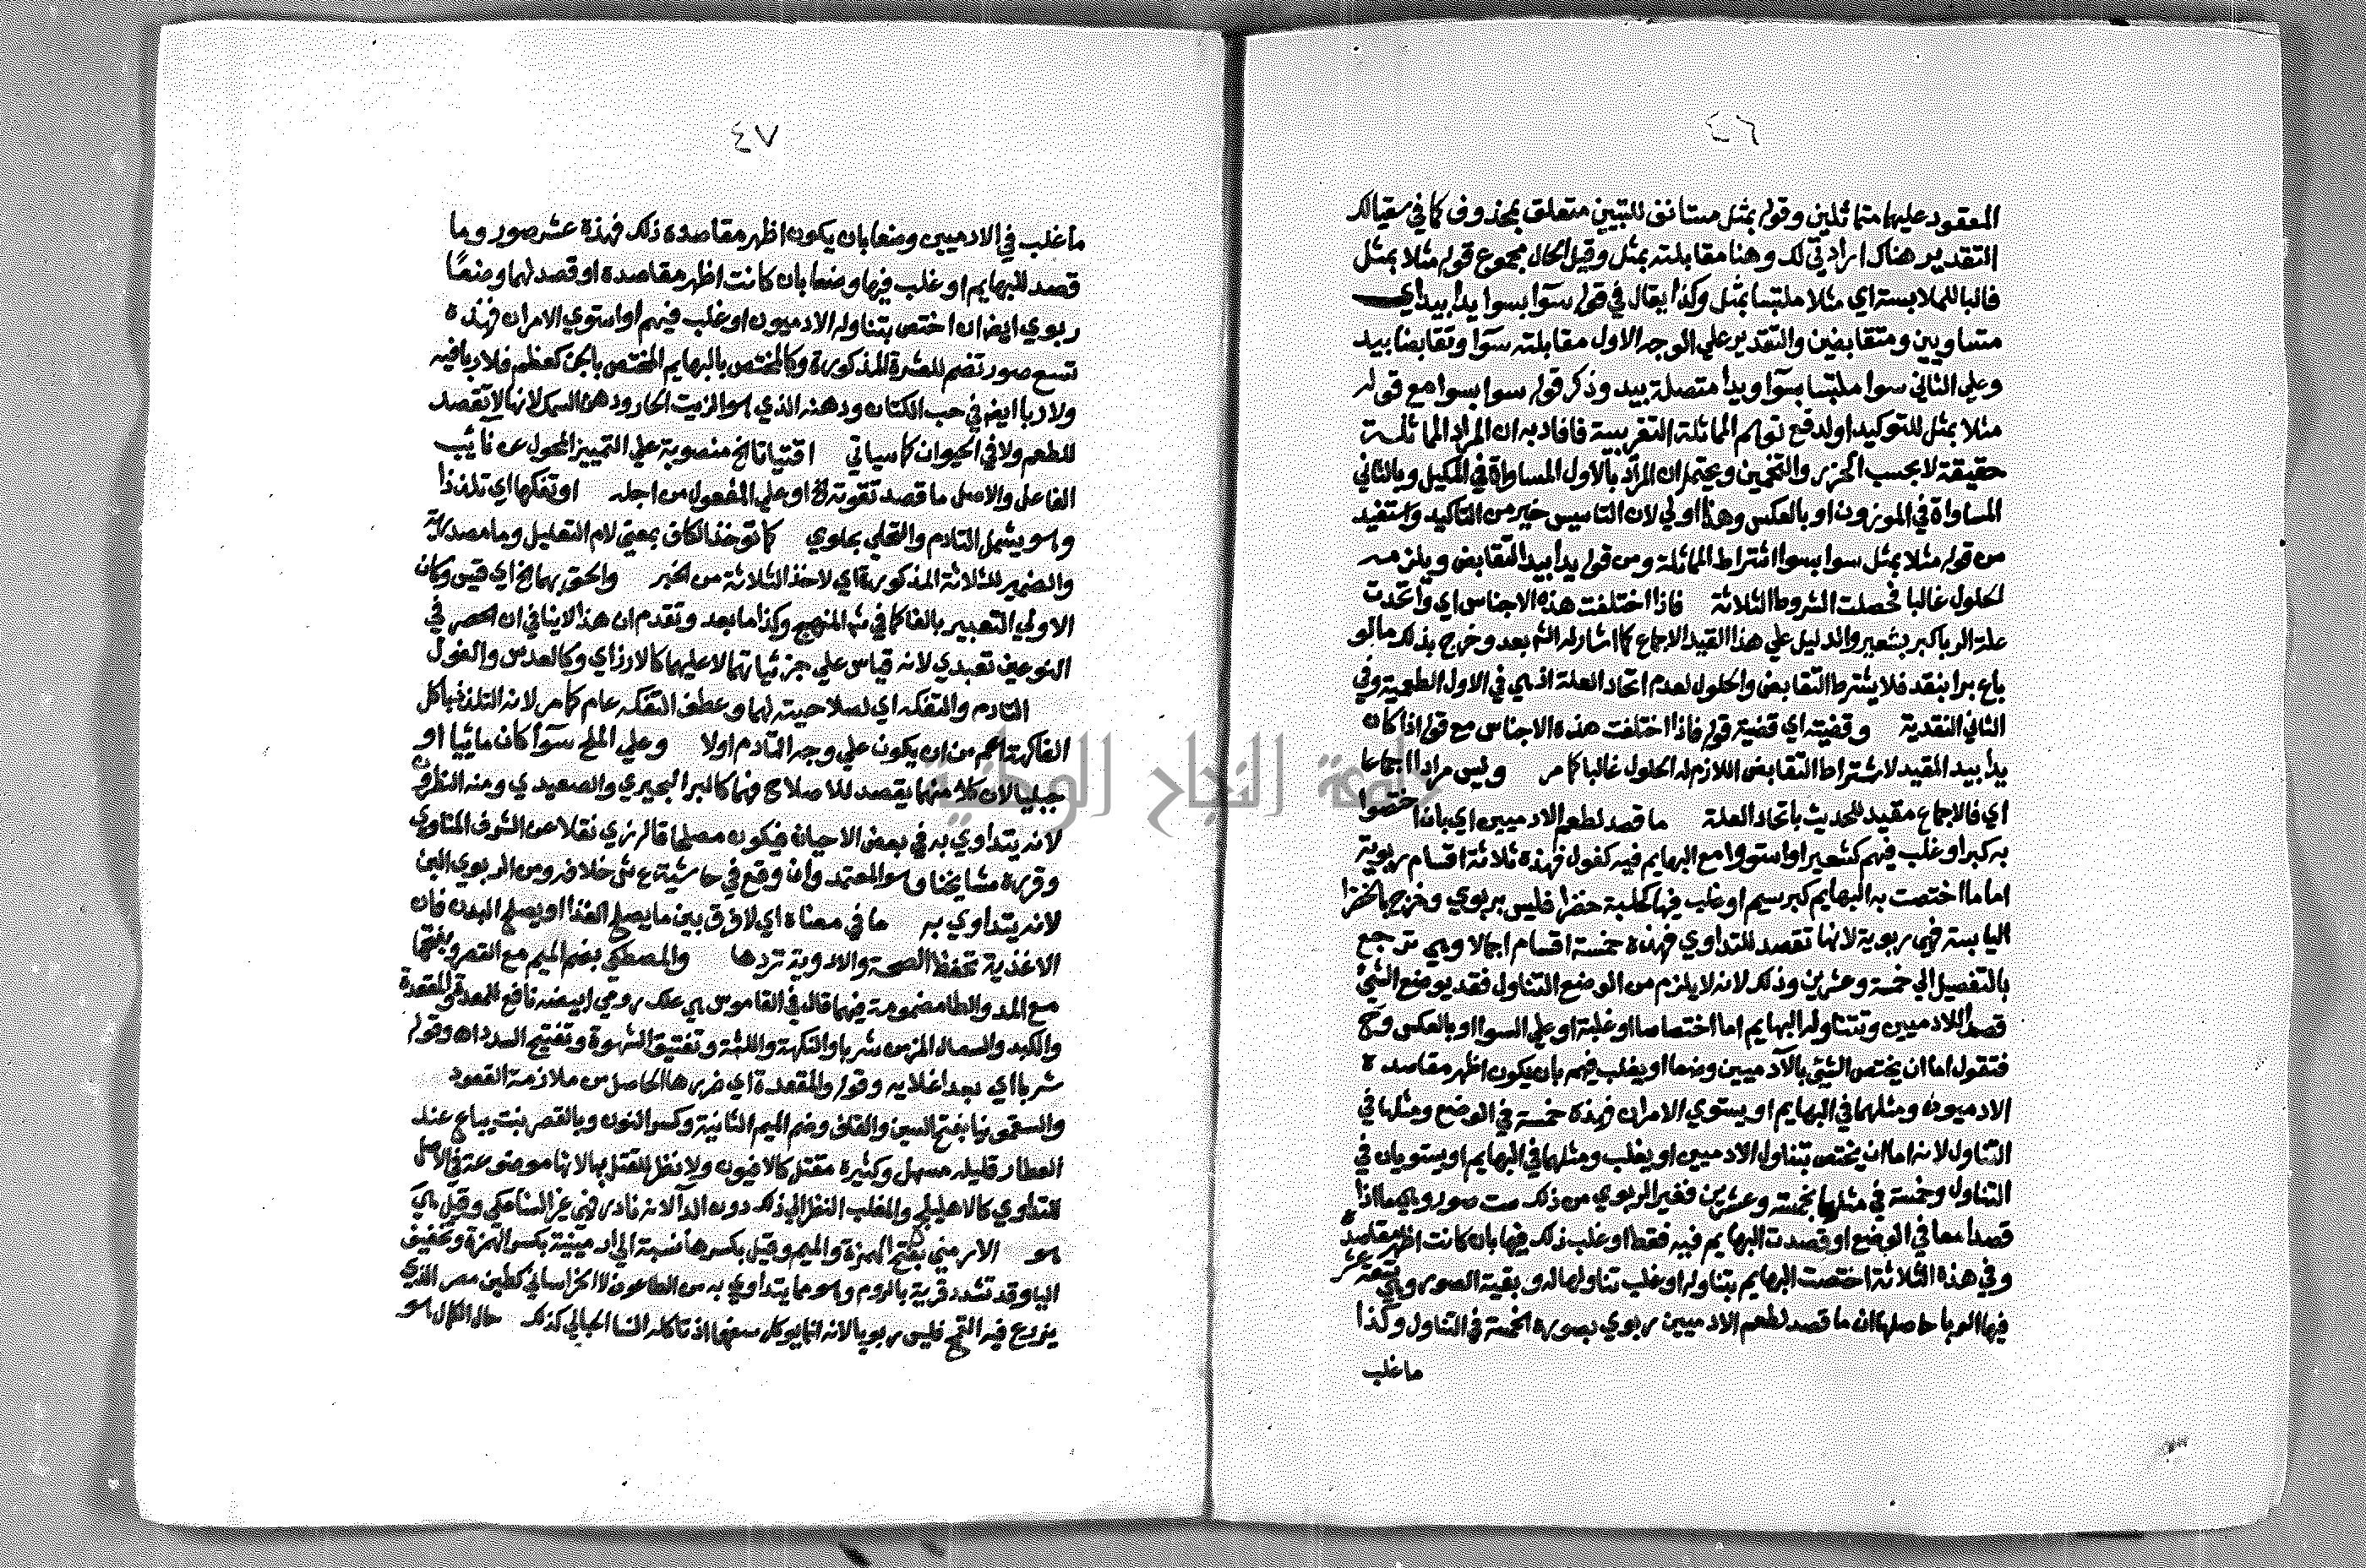 ٤٦
المعقود عليها متماثلين وقوله بمثل مستانف للتبيين متعلق بمحذوف كما في سقيا لك
التقدير هناك ارادتي لك وهنا مقابلته بمثل وقيل الحال مجموع قوله مثلا بمثل
فالبا للملابسة اي مثلا ملتبسا بمثل وكذا يقال في قوله سوآ بسوا يدا بيد اي
متساويين ومتقابضين والتقدير علي الوجه الاول مقابلته سوآ وتقابضا بيد
وعلي الثاني سوا ملتبسا بسوآ ويدا متصلة بيد وذكر قوله سوا بسوا مع قوله
مثلا بمثل للتوكيد او لدفع توهم المماثلة التقريبية فافاد به ان المراد المماثلة
حقيقة لا بحسب الحزر والتخمين ويحتمل ان المراد بالاول المساواة في المكيل وبالثاني
المساواة في الموزون او بالعكس وهذا اولي لان التاسيس خير من التاكيد واستفيد
من قوله مثلا بمثل سوا بسوا اشتراط المماثلة ومن قوله يدا بيد التقابض ويلزمه
الحلول غالبا فحصلت الشروط الثلاثة فاذا اختلفت هذه الاجناس اي واتحدت
علة الربا كبر بشعير والدليل علي هذا القيد الاجماع كما اشار له الش بعد وخرج بذلك ما لو
باع برا بنقد فلا يشترط التقابض والحلول لعدم اتحاد العلة اذ هي في الاول الطعمية وفي
الثاني النقدية وقضيته اي قضية قوله فاذا اختلفت هذه الاجناس مع قوله اذا كان
يدا بيد المقيد لاشتراط التقابض اللازم له الحلول غالبا كما مر وليس مرادا اجماعا
اي فالاجماع مقيد للحديث باتحاد العلة ما قصد لطعم الادميين اي بان اختصوا
به كبر او غلب فيهم كشعير او استووا مع البهايم فيه كفول فهذه ثلاثة اقسام ربوية
اما ما اختصت به البهايم كبرسيم او غلب فيها كحلبة خضرا فليس بربوي وخرج بالخضرا
اليابسة فهي ربوية لانها تقصد للتداوي فهذه خمسة اقسام اجمالا وهي ترجع
بالتفصيل الي خمسة وعشرين وذلك لانه لا يلزم من الوضع التناول فقد يوضع الشئ
قصدا للادميين وتتناوله البهايم اما اختصاصا او غلبة او علي السوا او بالعكس وح
فتقول اما ان يختص الشئ بالآدميين وضعا او يغلب فيهم بان يكون اظهر مقاصده
الادميون ومثلهما في البهايم او يستوي الامران فهذه خمسة في الوضع ومثلها في
التناول لانه اما ان يختص بتناول الادميين او يغلب ومثلهما في البهايم او يستويان في
التناول وخمسة في مثلها بخمسة وعشرين فغير الربوي من ذلك ست صور وهي ما اذا
قصدا معا في الوضع او قصدت البهايم فيه فقط او غلب ذلك فيها بان كانت اظهر مقاصده
وفي هذه الثلاثة اختصت البهايم بتناوله او غلب تناولها له وبقية الصور وهي تسعة عشر
فيها الربا حاصلها ان ما قصد لطعم الادميين ربوي بصوره الخمسة في التناول وكذا
ما غلب
٤٧
ما غلب في الادميين وضعا بان يكون اظهر مقاصده ذلك فهذه عشر صور وما
قصد للبهايم او غلب فيها وضعا بان كانت اظهر مقاصده او قصد لهما وضعا
ربوي ايضا ان اختص بتناوله الادميون او غلب فيهم او استوي الامران فهذه
تسع صور تضم للعشرة المذكورة وكالمختص بالبهايم المختص بالجن كعظم فلا ربا فيه
ولا ربا ايضا في حب الكتان ودهنه الذي هو الزيت الحار ودهن السمك لانها لا تقصد
للطعم ولا في الحيوان كما سياتي اقتياتا الخ منصوبة علي التمييز المحول عن نائب
الفاعل والاصل ما قصد تقوته الخ او علي المفعول من اجله او تفكها اي تلذذا
وهو يشمل التادم والتحلي بحلوي كما توخذ الكاف بمعني لام التعليل وما مصدرية
والضمير للثلاثة المذكورة اي لاخذ الثلاثة من الخبر والحق بهما الخ اي قيس وكان
الاولي التعبير بالفا كما في ش المنهج وكذا ما بعد وتقدم ان هذا لا ينافي ان الحصر في
النوعين تعبدي لانه قياس علي جزئياتهما لا عليهما كالارز اي وكالعدس والفول
التادم والتفكه اي لصلاحيته لهما وعطف التفكه عام كما مر لانه التلذذ باكل
الفاكهة اعم من ان يكون علي وجه التادم اولا وعلي الملح سوآ كان مائيا او
جبليا لان كلا منهما يقصد للاصلاح فهما كالبر البحيري والصعيدي ومنه النطرون
لانه يتداوي به في بعض الاحيان فيكون مصلحا قاله زي نقلا عن الشرف المناوي
وقرره مشايخنا وهو المعتمد وان وقع في حاشية ع ش خلافه ومن الربوي البن
لانه يتداوي به ما في معناه اي لا فرق بين ما يصلح الغذا او يصلح البدن فان
الاغذية تحفظ الصحة والادوية تردها والمصطكي بضم الميم مع القصر وبفتحها
مع المد والطا مضمومة فيهما قال في القاموس هي علك رومي ابيضه نافع للمعدة والمقعدة
والكبد والسعال المزمن شربا والنكهة واللثة وتفتيق الشهوة وتفتيح السدد اه وقوله
شربا اي بعد اغلايه وقوله والمقعدة اي ضررها الحاصل من ملازمة القعود
والسقمونيا بفتح السين والقاف وضم الميم الثانية وكسر النون وبالقصر نبت يباع عند
العطار قليله مسهل وكثيره مقتل كالافيون ولا نظر للقتل بها لانها موضوعة في الاصل
للتداوي كالاهليلج والمغلب النظر الي ذلك دون الدآ لانه نادر فهي غير السنا مكي وقيل هي
هو الارمني بفتح الهمزة والميم وقيل بكسرها نسبة الي ارمينية بكسر الهمزة وتخفيف
اليا وقد تشدد قرية بالروم وهو مما يتداوي به من الطاعون لا الخراساني كطين مصر الذي
يزرع فيه القمح فليس ربويا لانه انما يوكل سفها اذ تاكله النسا الحبالي كذلك حال الكمال هو
جامعة النجاح الوطنية